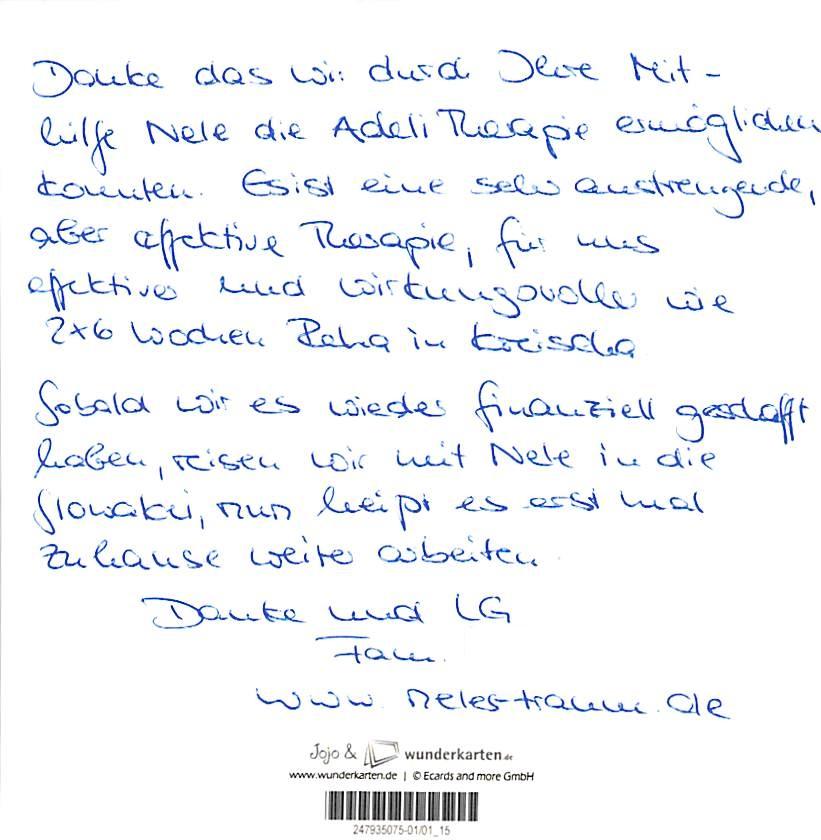 Danke das wir durch Ihre Mit-
hilfe Nele die Adeli Therapie ermöglichen
konnten. Es ist eine sehr anstrengende,
aber effektive Therapie, für uns
effektiver und wirkungsvoller wie
2x6 Wochen Reha in Kreischa
Sobald wir es wieder finanziell geschafft
haben, reisen wir mit Nele in die
Slowakei, nun heißt es erst mal
Zuhause weiter arbeiten.
Danke und LG
Fam.
www.neles-traum.de
Jojo & wunderkarten.de
www.wunderkarten.de | © Ecards and more GmbH
247935075-01/01_15